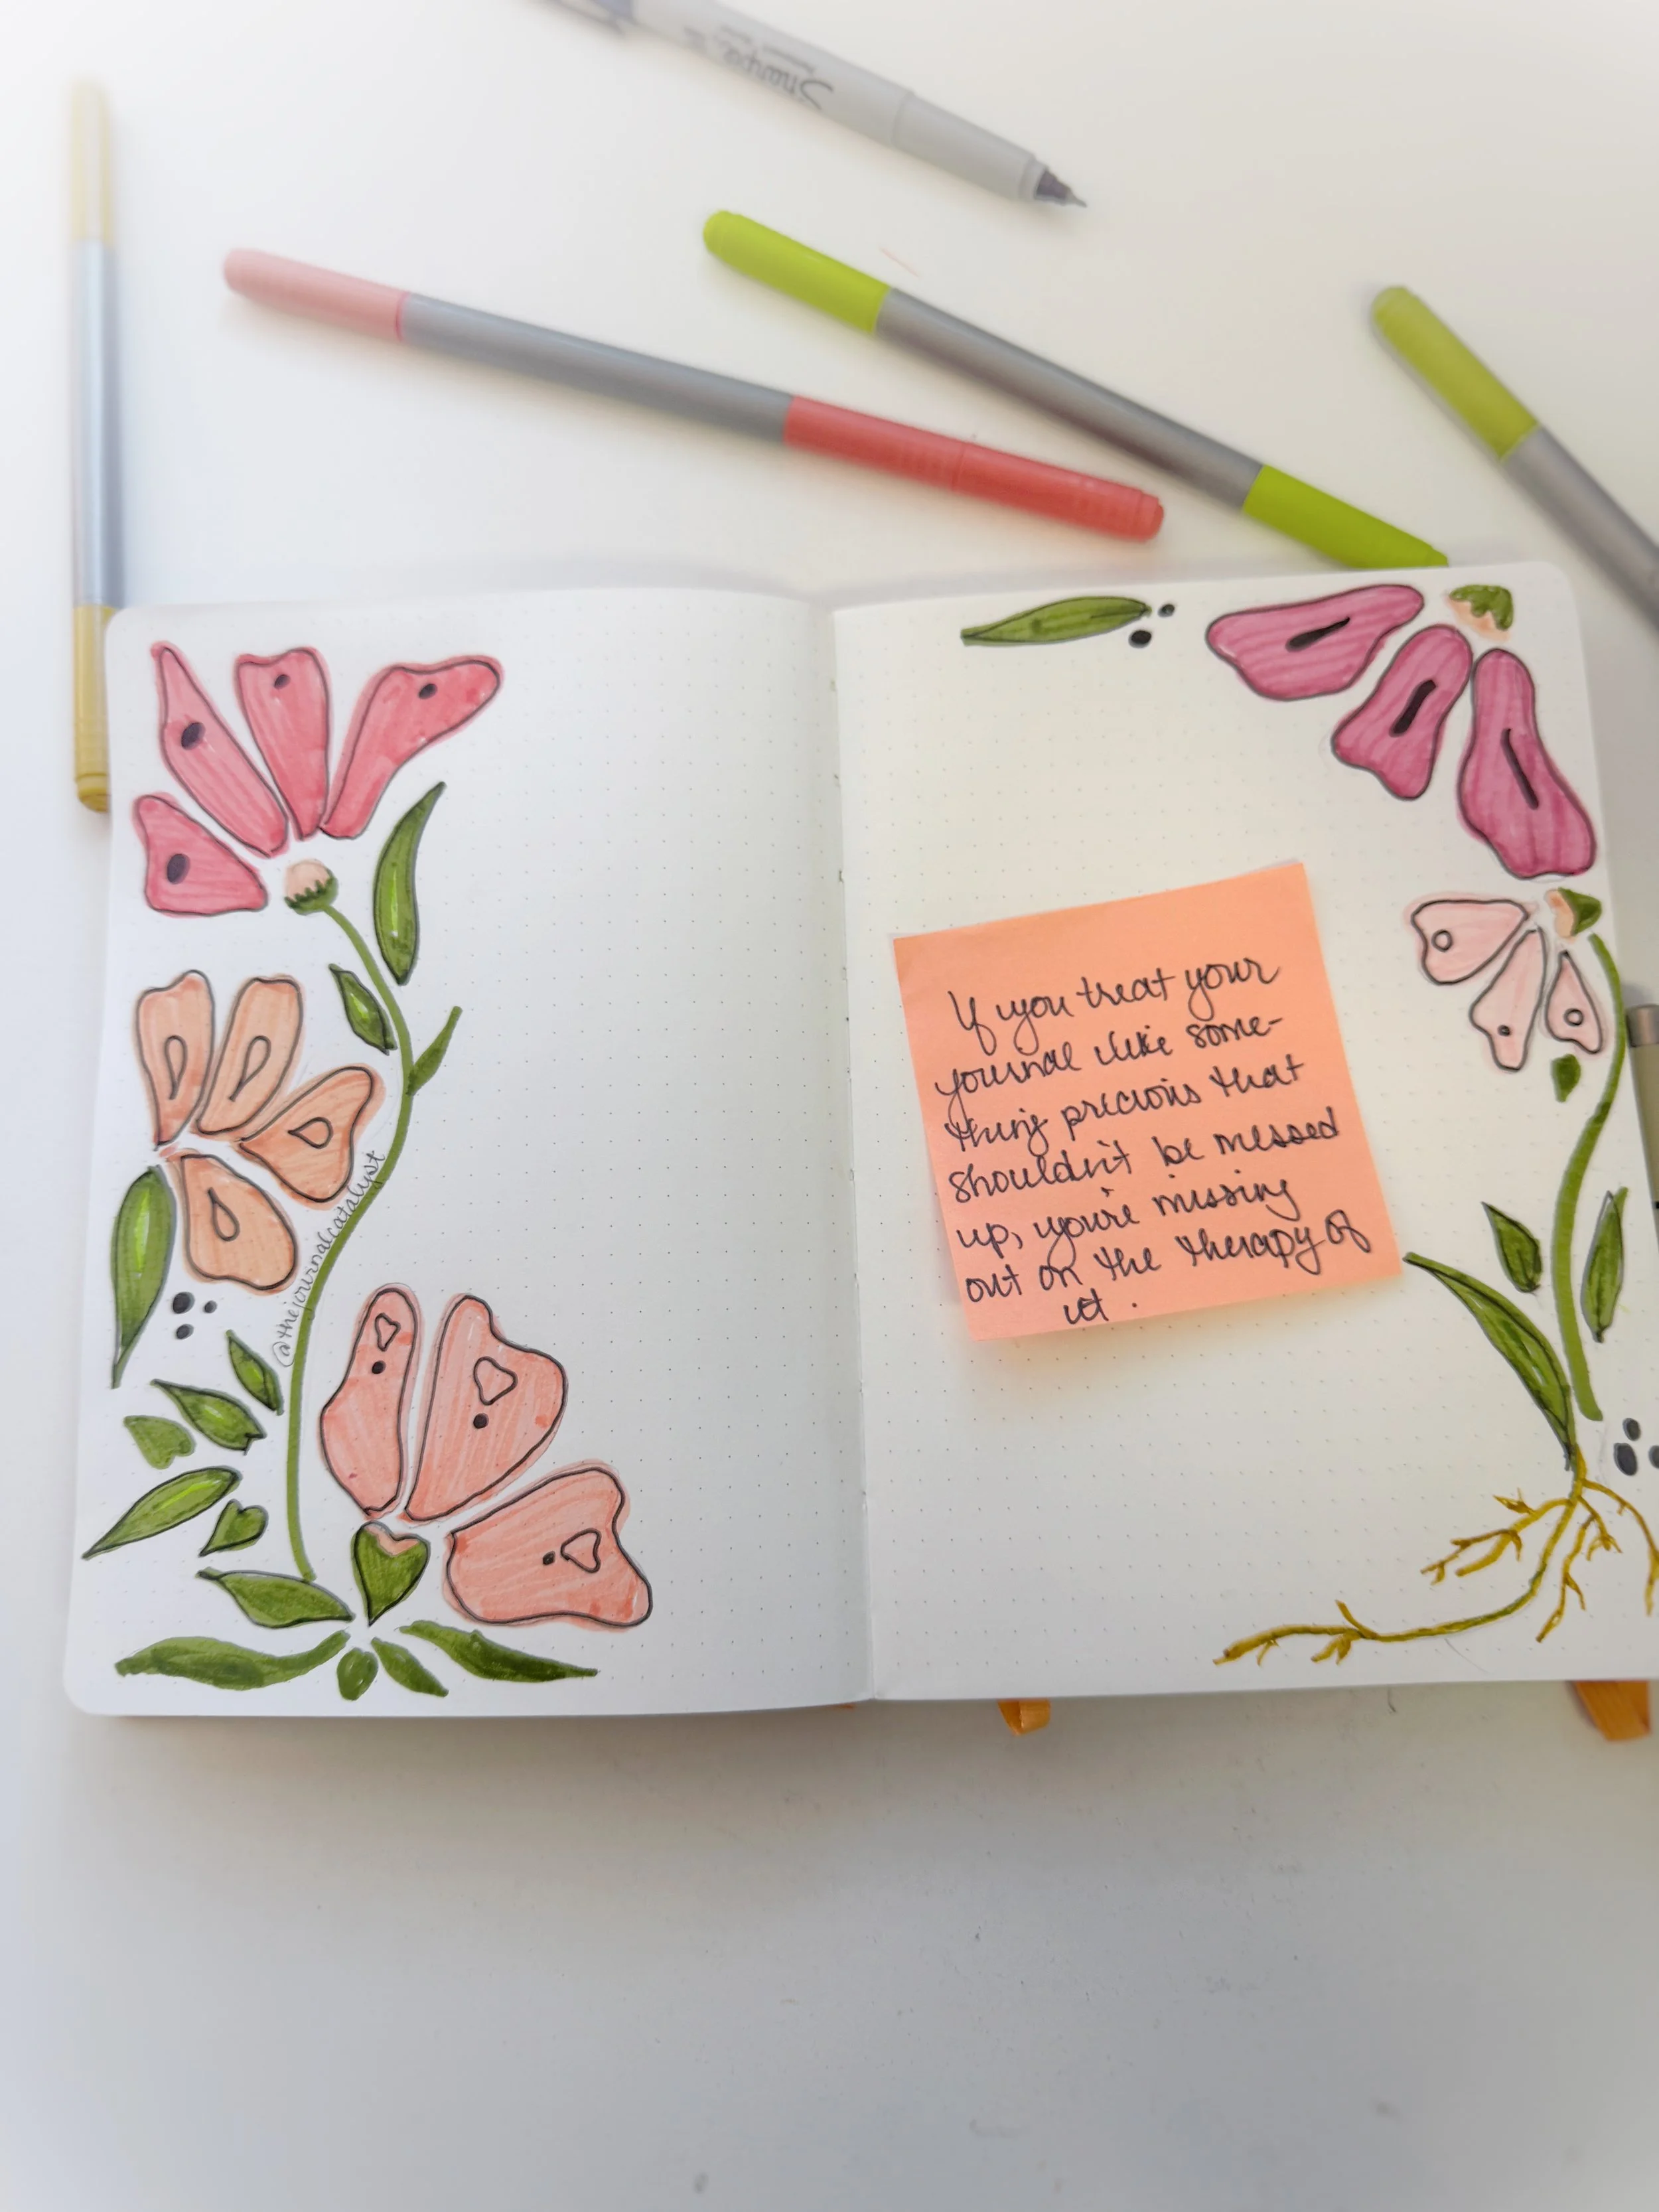 Sharpie
@thejournalcatalyst
If you treat your
journal like some-
thing precious that
shouldn't be messed
up, you're missing
out on the therapy of
it.